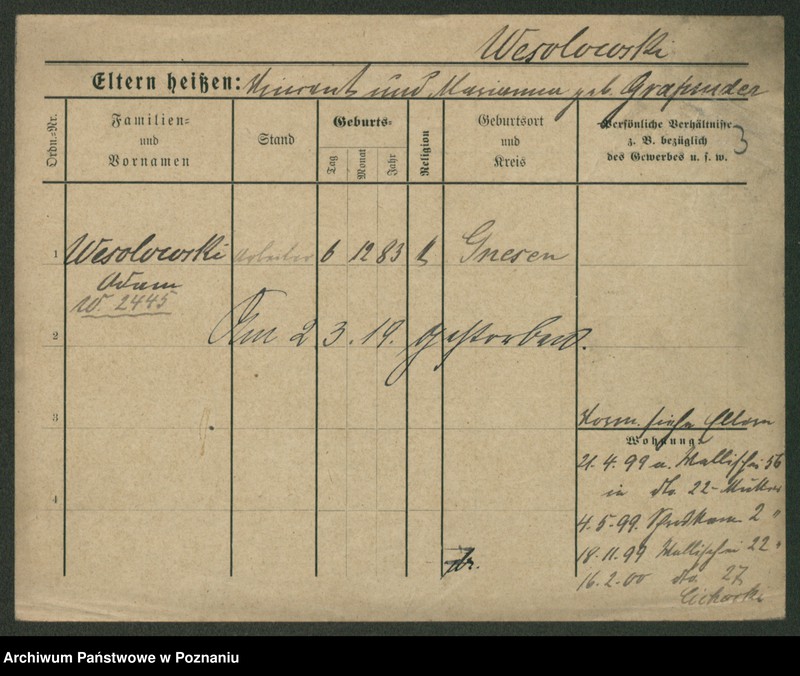 Wesolowski
Eltern heißen: Vincent und Marianna geb. Grafunder
Ordn.-Nr.
Familien-
und
Vornamen
Stand
Geburts-
Tag
Monat
Jahr
Religion
Geburtsort
und
Kreis
Persönliche Verhältnisse
z. B. bezüglich
des Gewerbes u. s. w.
3
1 Wesolowski Arbeiter 6 12 83 k Gnesen
Adam
W. 2445
2 Am 2 3. 19. gestorben.
3
Vorm. siehe Eltern
Wohnung:
21. 4. 99 a. Wallischei 56
in do 22 - Mutter
4
4. 5. 99. 2 "
18. 11. 99 Wallischei 22 "
16. 2. 00 do 27
Cichocki
Archiwum Państwowe w Poznaniu